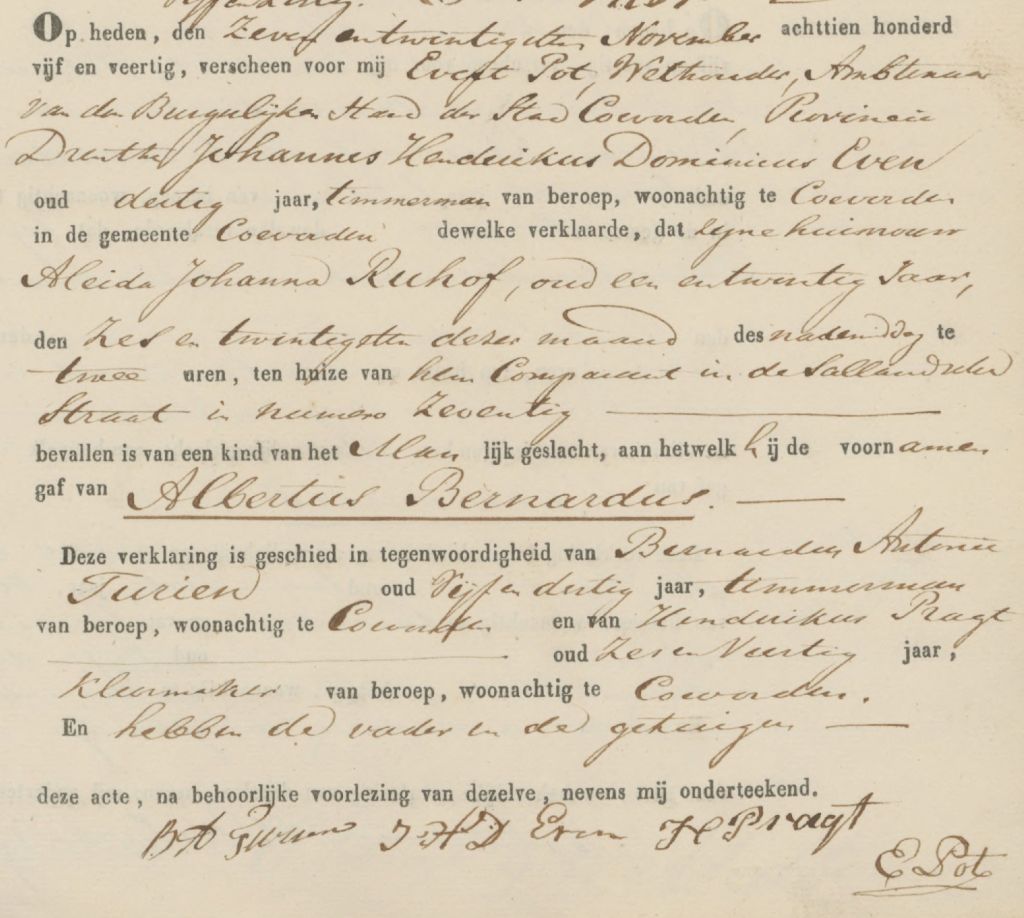 Op heden, den Zeven entwintigsten November achttien honderd
vijf en veertig, verscheen voor mij Evert Pot, Wethouder, Ambtenaar
van den Burgerlijken Stand der Stad Coevorden, Provincie
Drenthe Johannes Hendrikus Dominicus Even
oud dertig jaar, timmerman van beroep, woonachtig te Coevorden
in de gemeente Coevorden dewelke verklaarde, dat zyne huisvrouw
Aleida Johanna Ruhof, oud een entwintig Jaar,
den Zes en twintigsten dezer maand des nademiddag te
twee uren, ten huize van hem Comparant in de Sallandsche
Straat in numero Zeventig
bevallen is van een kind van het Man lijk geslacht, aan hetwelk hij de voornamen
gaf van Albertus Bernardus.
Deze verklaring is geschied in tegenwoordigheid van Bernardus Antonie
Turien oud Vijf en dertig jaar, timmerman
van beroep, woonachtig te Coevorden en van Hendrikus Pragt
oud Zes en Veertig jaar,
Kleermaker van beroep, woonachtig te Coevorden.
En hebben de vader en de getuigen
deze acte, na behoorlijke voorlezing van dezelve, nevens mij onderteekend.
B A Turien J H D Even H Pragt
E Pot